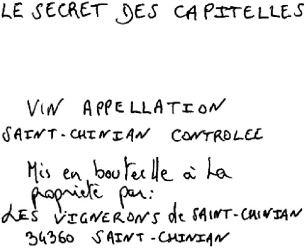 LE SECRET DES CAPITELLES
VIN APPELLATION
SAINT-CHINIAN CONTROLEE
Mis en bouteille à la
propriété par:
LES VIGNERONS de SAINT-CHINIAN
34360 SAINT-CHINIAN